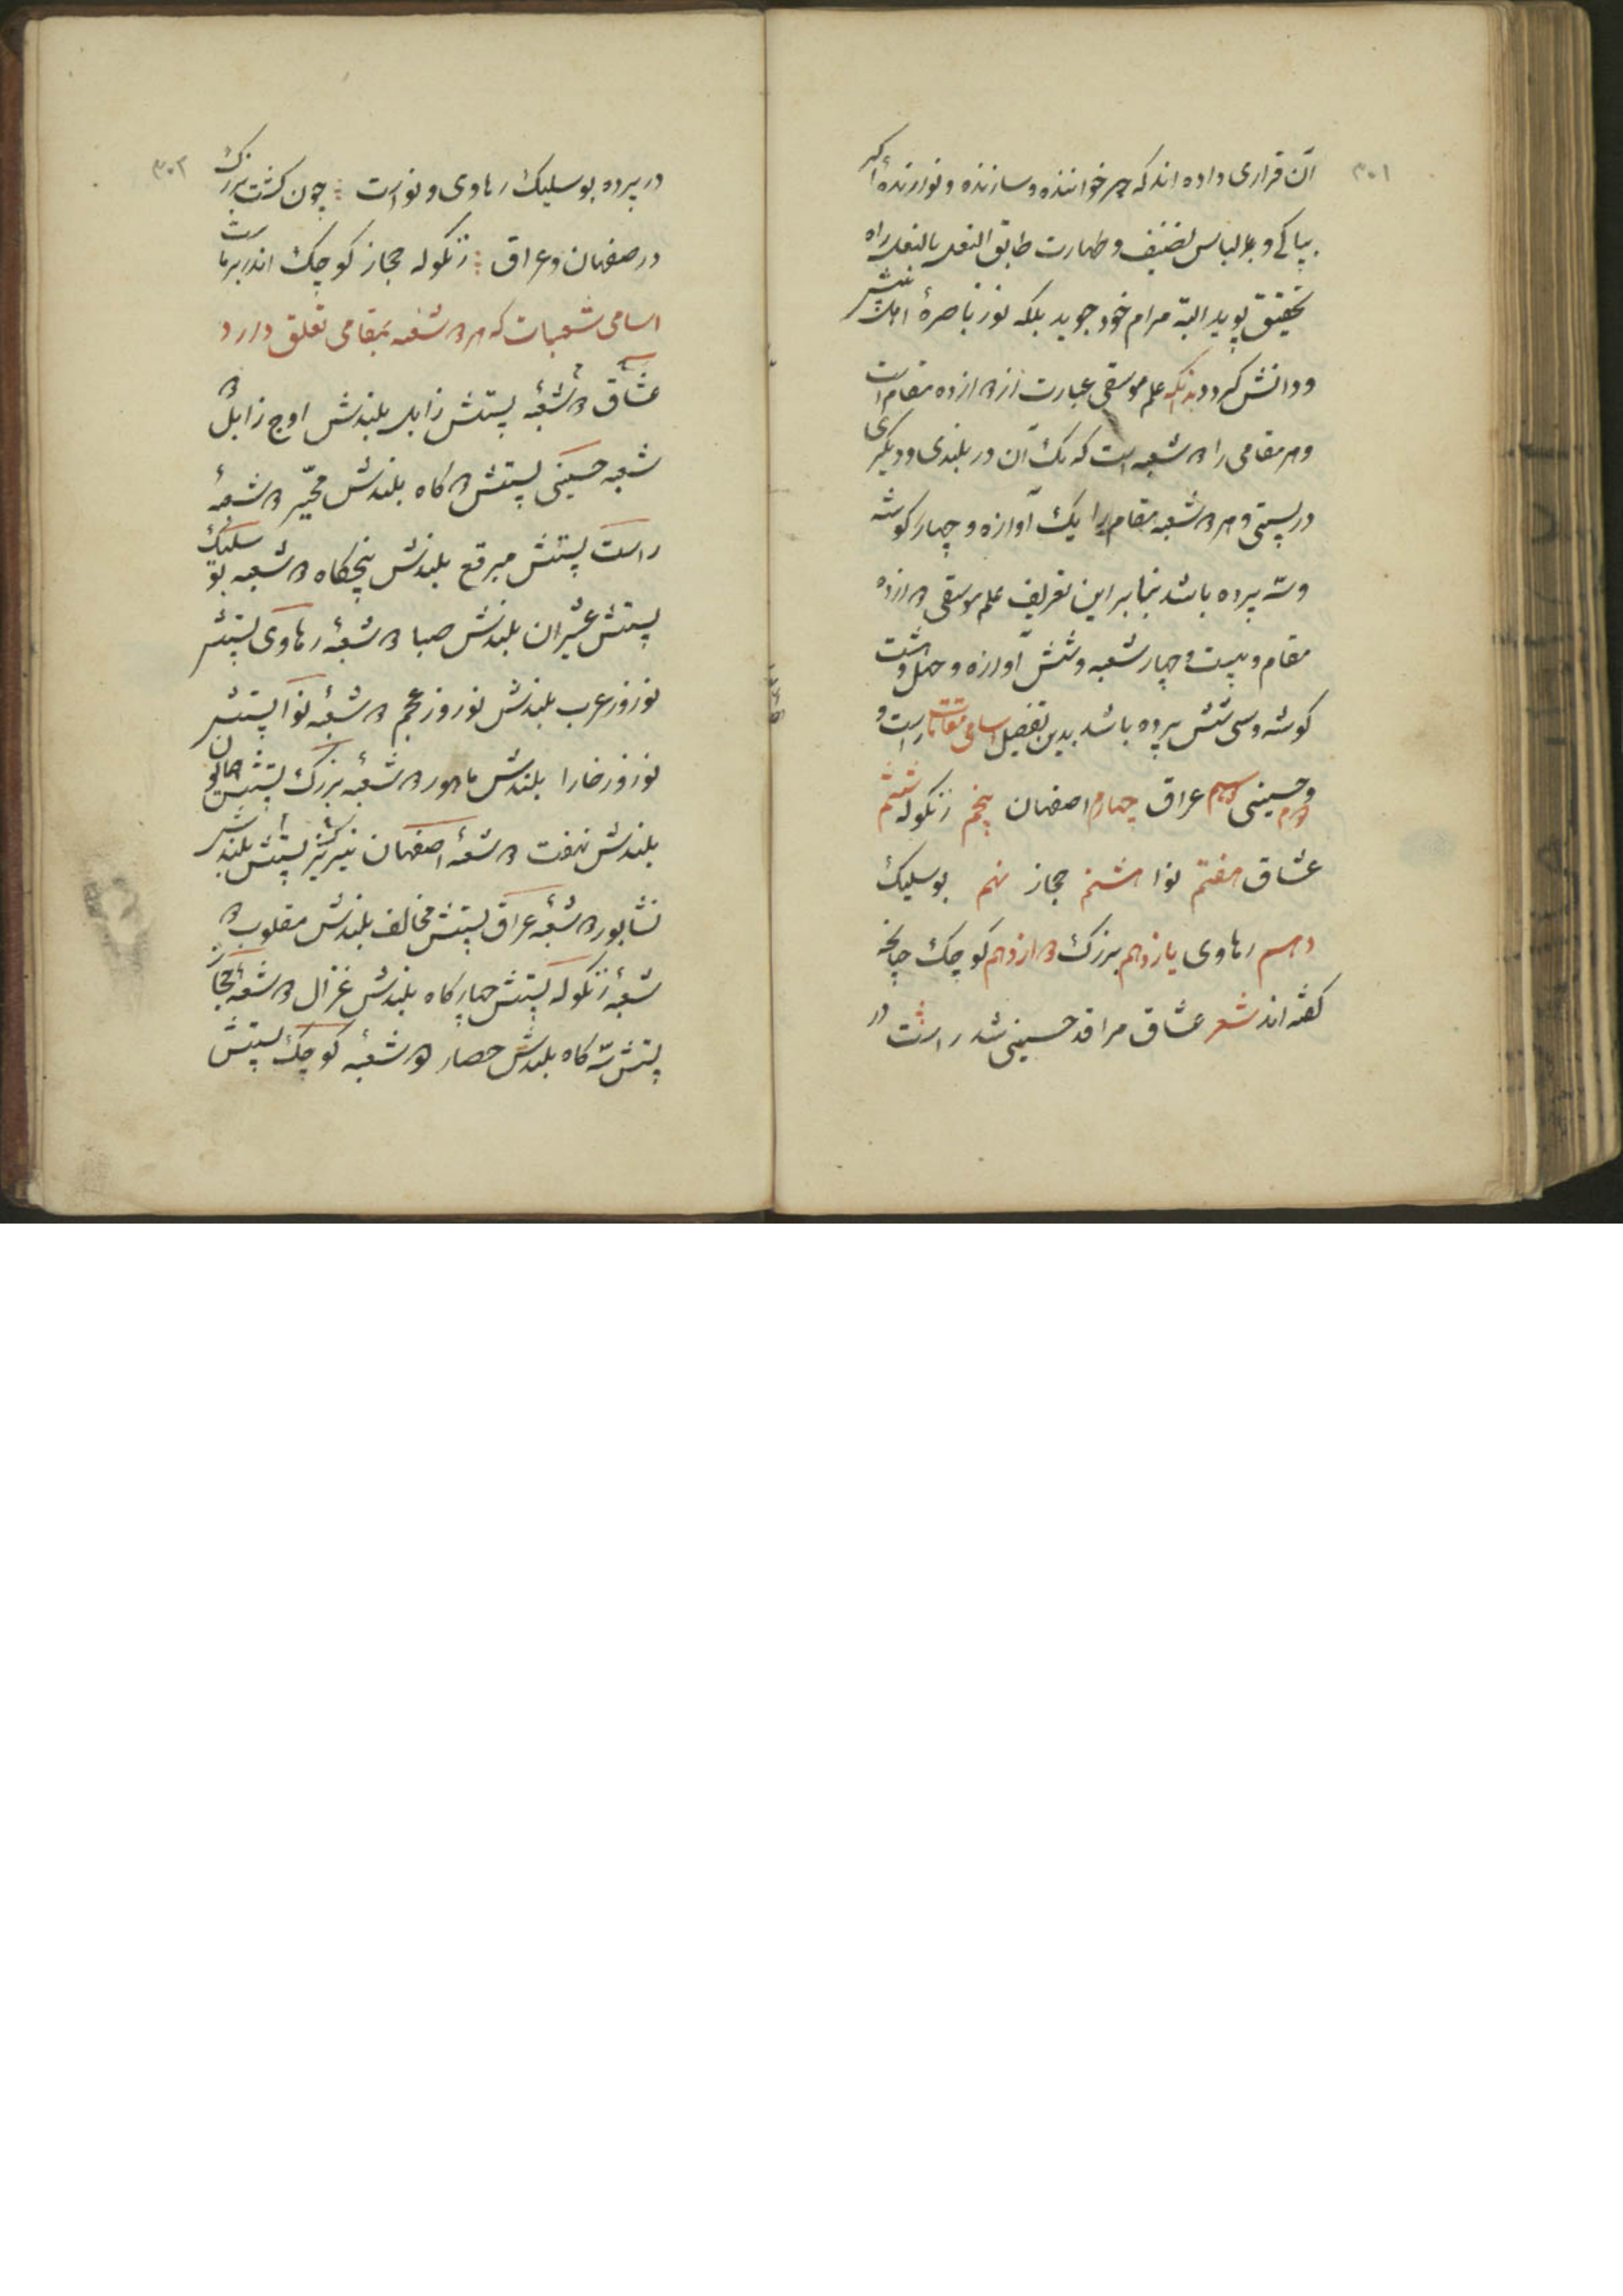 ۳۰۱
آن قراری داده اند که هر خواننده و سازنده و نوازندهٔ اکر
بپاکی و بر لباس لضیف و طهارت طابق النعل بالنعل راه
تحقیق پوید البته مرام خود جوید بلکه نور ناصرهٔ اهل بینش
و دانش کردد بدانکه علم موسقی عبارت از ۱۲ ازده مقام است
و هر مقامی را ۲ شعبه است که یک آن در بلندی و دیکری
در پستی و هر ۲ شعبه مقام را یک آوازه و چهار کوشه
و سه پرده باشد بنابر این تعریف علم موسقی ۱۲ ازده
مقام و بیست و چهار شعبه و شش آوازه و چهل و هشت
کوشه و سی شش پرده باشد بدین تفصیل اسامی مقامات راست
دوم حسینی سیم عراق چهارم اصفهان پنجم زنکوله ششم
عشاق هفتم نوا هشتم حجاز نهم بوسلیک
دهم رهاوی یازدهم بزرک ۲ ازدهم کوچک چنانچه
کفته اند شعر عشاق مراقد حسینی شد راست در
۳۰۲
در پرده بوسلیک رهاوی و نواست چون کشت بزرک
در صفهان و عراق زنکوله حجاز کوچک اندر بر ماست
اسامی شعبات که هر ۲ شعبه بمقامی تعلق دارد
عشاق ۲ شعبه پستش زابل بلندش اوج زابل ۲
شعبه حسینی پستش ۲ کاه بلندش محیّر ۲ شعبهٔ
راست پستش مبرقع بلندش پنجکاه ۲ شعبه بوسلیک
پستش عشیران بلندش صبا ۲ شعبهٔ رهاوی پستش
نوروز عرب بلندش نوروز عجم ۲ شعبه نوا پستش
نوروز خارا بلندش ماهور ۲ شعبهٔ بزرک پستش همایون
بلندش نهفت ۲ شعبهٔ اصفهان پستش نیریز بلندش
نشابور ۲ شعبه عراق پستش مخالف بلندش مقلوب ۲
شعبهٔ زنکوله پستش چهار کاه بلندش غزال ۲ شعبه حجاز
پستش سه کاه بلندش حصار ۲ شعبهٔ کوچک پستش